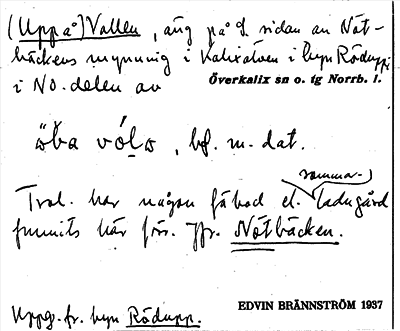 (Uppå) Vallen, äng på S. sidan av Nöt-
bäckens mynning i Kalixälven i byn Rödupp
i NO. delen av Överkalix sn o. tg Norrb. l.
, bf. m. dat.
sommar-
Trol. har någon fäbod el. ladugård
funnits här förr. Jfr. Nötbäcken.
Uppg. fr. byn Rödupp.
EDVIN BRÄNNSTRÖM 1937